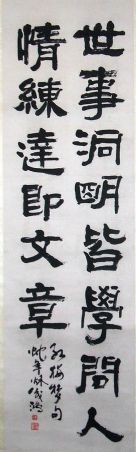 世事洞明皆學問人
情練達即文章
紅樓梦句